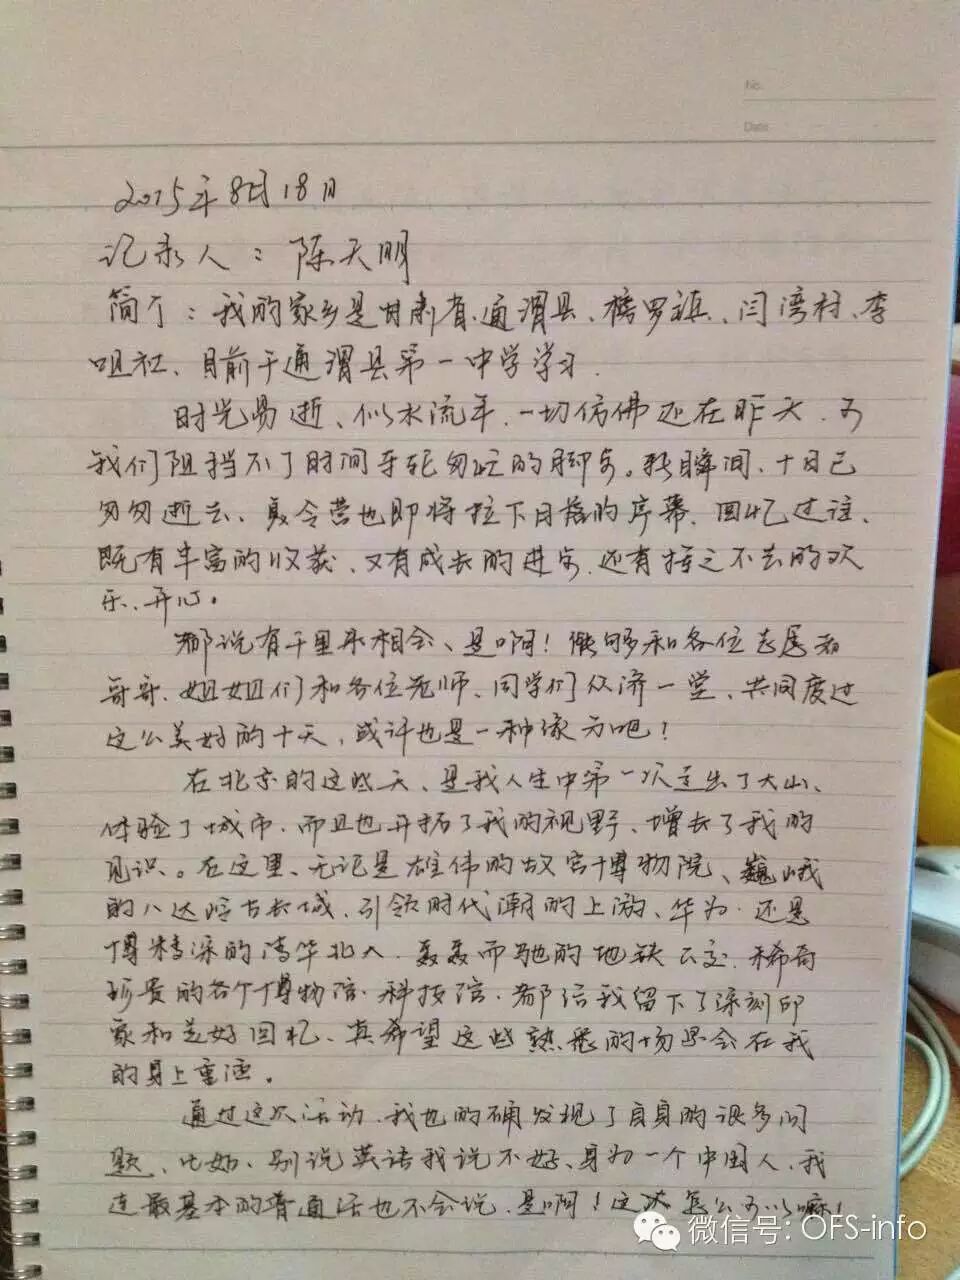 No.
Date
2015年8月18日
记录人：陈天明
简介：我的家乡是甘肃省、通渭县、榜罗镇、闫湾村、李
咀社、目前于通渭县第一中学学习.
时光易逝、似水流年、一切仿佛还在昨天.可
我们阻挡不了时间车轮匆忙的脚步。转瞬间、十日已
匆匆逝去、夏令营也即将拉下日落的序幕、回忆过往、
既有丰富的收获、又有成长的进步、还有挥之不去的欢
乐、开心。
都说有千里来相会、是啊！能够和各位志愿者
哥哥、姐姐们和各位老师、同学们众济一堂、共同度过
这么美好的十天，或许也是一种缘分吧！
在北京的这些天、是我人生中第一次走出了大山、
体验了城市.而且也开拓了我的视野、增长了我的
见识。在这里、无论是雄伟的故宫博物院、巍峨
的八达岭古长城、引领时代潮的上游、华为.还是
博精深的清华北大、轰轰而驰的地铁公交、稀奇
珍贵的各个博物馆、科技馆、都给我留下了深刻印
象和美好回忆、真希望这些熟悉的场景会在我
的身上重演。
通过这次活动、我也的确发现了自身的很多问
题、比如、别说英语我说不好、身为一个中国人、我
连最基本的普通话也不会说、是啊！这怎么可以嘛！
微信号: OFS-info